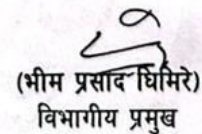 (भीम प्रसाद घिमिरे)
विभागीय प्रमुख